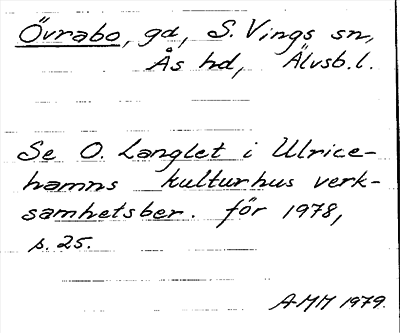 Övrabo, gd, S. Vings sn,
Ås hd, Älvsb. l.
Se O. Langlet i Ulrice-
hamns kulturhus verk-
samhetsber. för 1978,
s. 25.
AMM 1979.